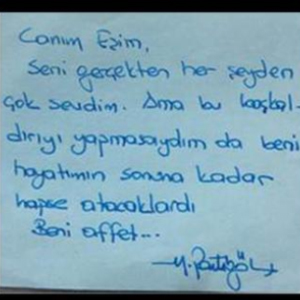 Canım Eşim,
Seni gerçekten her şeyden
çok sevdim. Ama bu başkal-
dırıyı yapmasaydım da beni
hayatımın sonuna kadar
hapse atacaklardı
Beni affet...